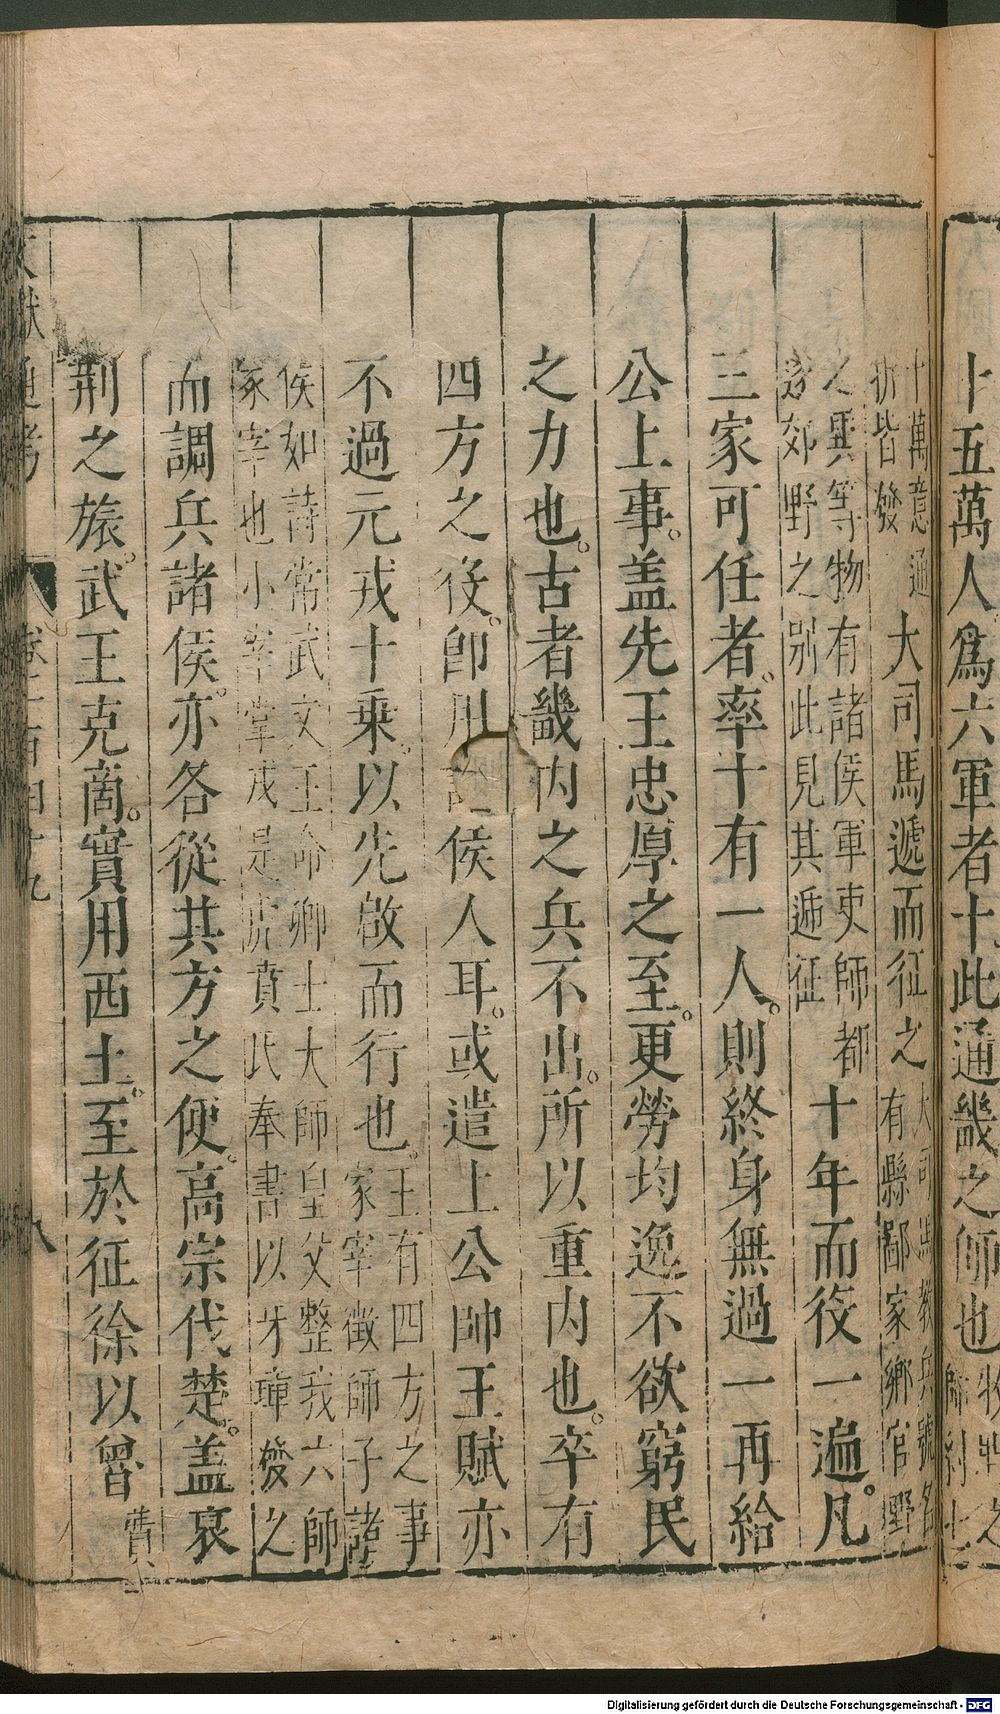 十五萬人爲六軍者十此通畿之師也
十萬意通
折皆發
大司馬遞而征之
大司馬教兵號名
有縣鄙家鄉官野
之異等物有諸侯軍吏師都
郊野之別此見其遞征
十年而役一遍凡
三家可任者率十有一人則終身無過一再給
公上事盖先王忠厚之至更勞均逸不欲窮民
之力也古者畿内之兵不出所以重内也卒有
四方之役卽用諸侯人耳或遣上公帥王賦亦
不過元戎十乘以先啟而行也
王有四方之事
冢宰徵師于諸
侯如詩常武文王命卿士大師皇父整我六師
冢宰也小宰掌戎是虎賁氏奉書以牙璋發之
而調兵諸侯亦各從其方之便高宗伐楚盖裒
荆之旅武王克商實用西土至於征徐以魯
費
文獻通考 卷一百四十九 八
Digitalisierung gefördert durch die Deutsche Forschungsgemeinschaft - DFG